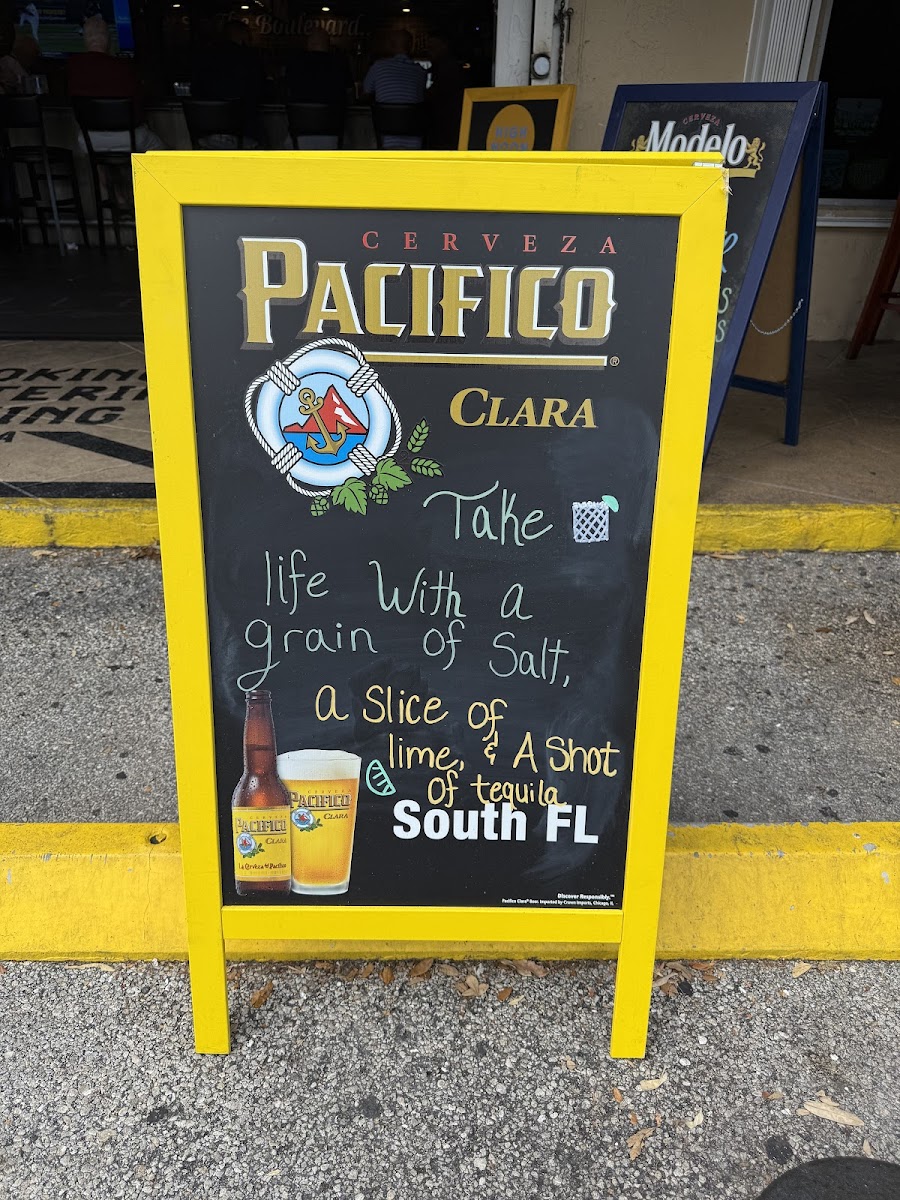 The Boulevard
HIGH
NOON
CERVEZA
Modelo
CERVEZA
PACIFICO®
CLARA
Take
life With a
grain of Salt,
a Slice of
lime, & A Shot
of tequila
South FL
CERVEZA
PACIFICO
CLARA
PACIFICO
CLARA
La Cerveza del Pacífico
Discover Responsibly.™
Pacifico Clara® Beer. Imported by Crown Imports, Chicago, IL